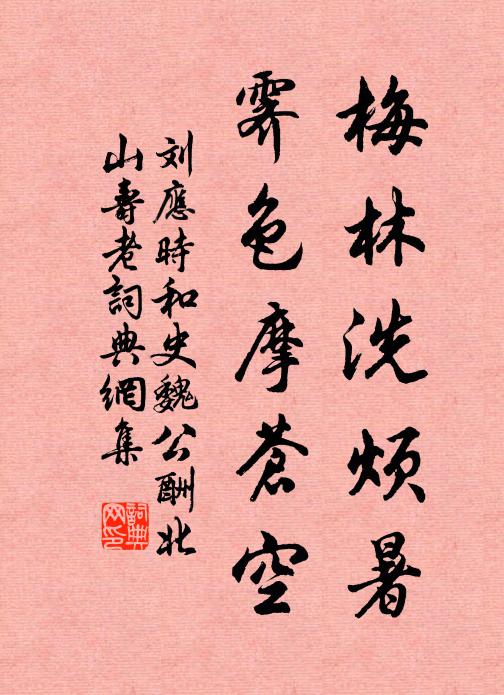 梅林洗烦暑
霁色摩蒼空
刘應時和史魏公酬北
山壽老詞典網集
詞典
网印